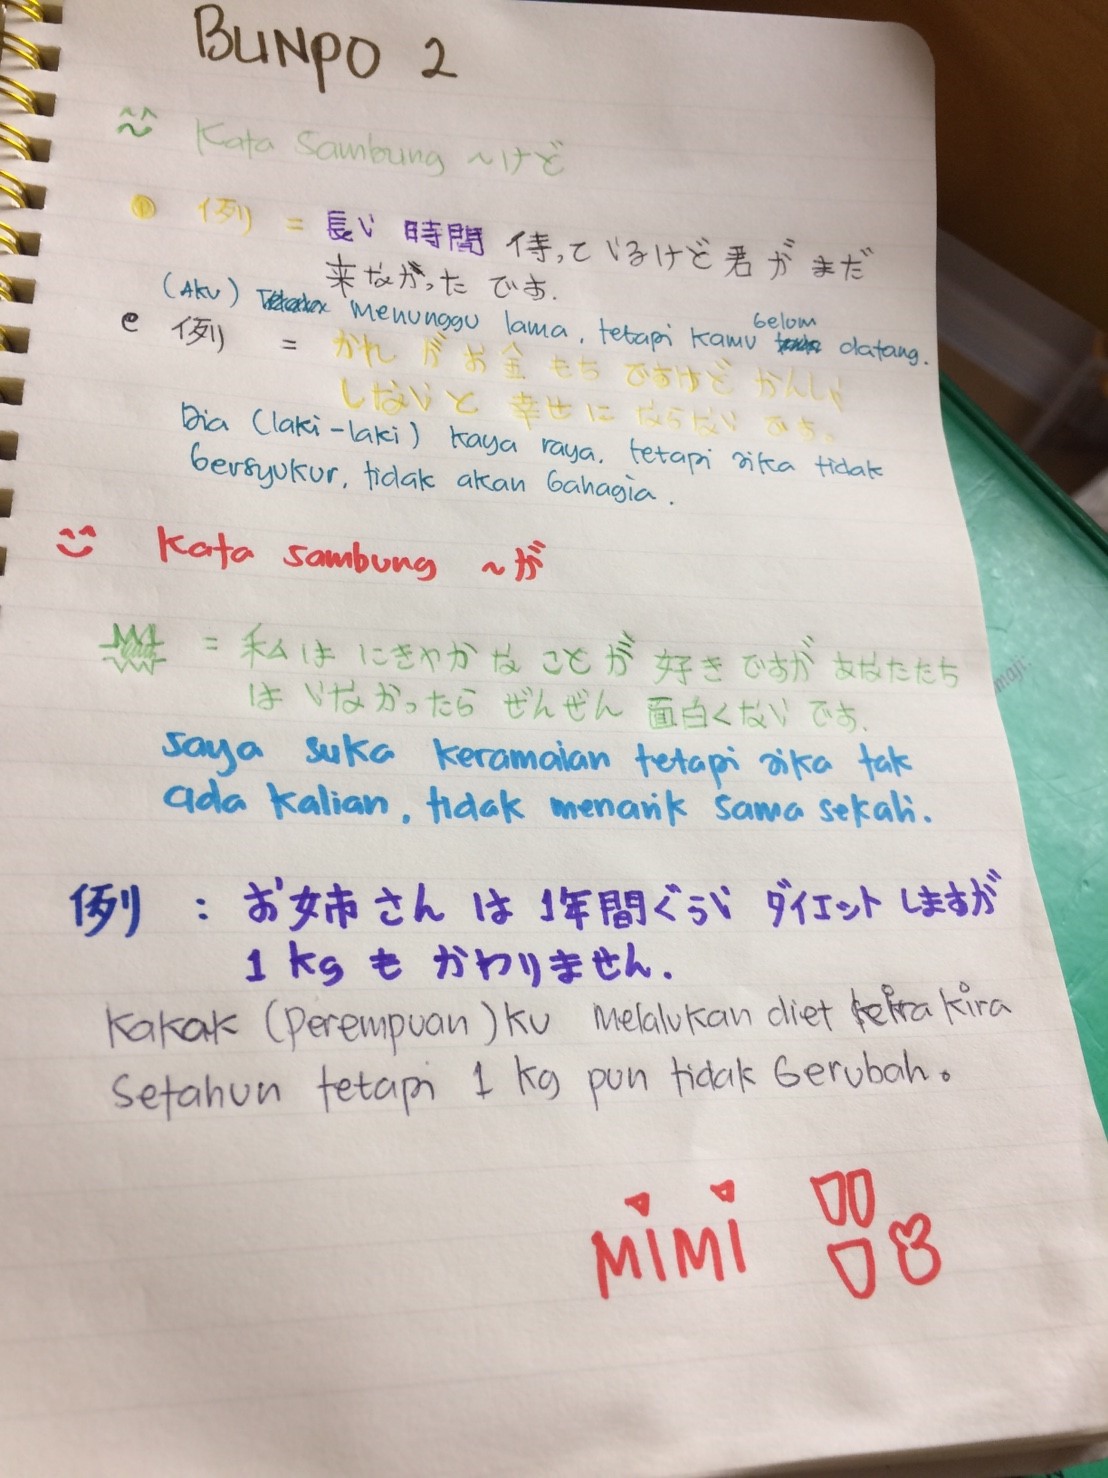 BUNPO 2
Kata sambung ~けど
例 = 長い 時間 待っているけど君が まだ
来ながった です.
(AKU) menunggu lama, tetapi kamu belom datang.
e 例 = かれ が お金 もち ですけど かんしゃ
しないと 幸せに ならない です.
Dia (laki-laki) kaya raya, tetapi jika tidak
bersyukur, tidak akan bahagia.
Kata sambung ~が
= 私は にぎやかな ことが 好き ですが あなたたち
は いなかったら ぜんぜん 面白くない です.
saya suka keramaian tetapi jika tak
ada kalian, tidak menarik sama sekali.
例 : お姉さん は 1年間ぐらい ダイエット しますが
1 kg も かわりません.
Kakak (perempuan)ku melalukan diet kira kira
setahun tetapi 1 kg pun tidak berubah.
MiMi